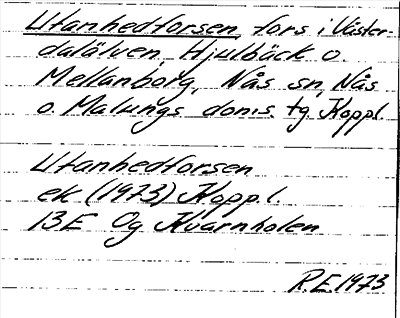 Utanhedforsen, fors i Väster-
dalälven, Hjulbäck o.
Mellanborg, Nås sn, Nås
o. Malungs doms. tg Koppl.
Utanhedforsen
ek (1973) Koppl.
13E Og Kvarnholen
R.E. 1973